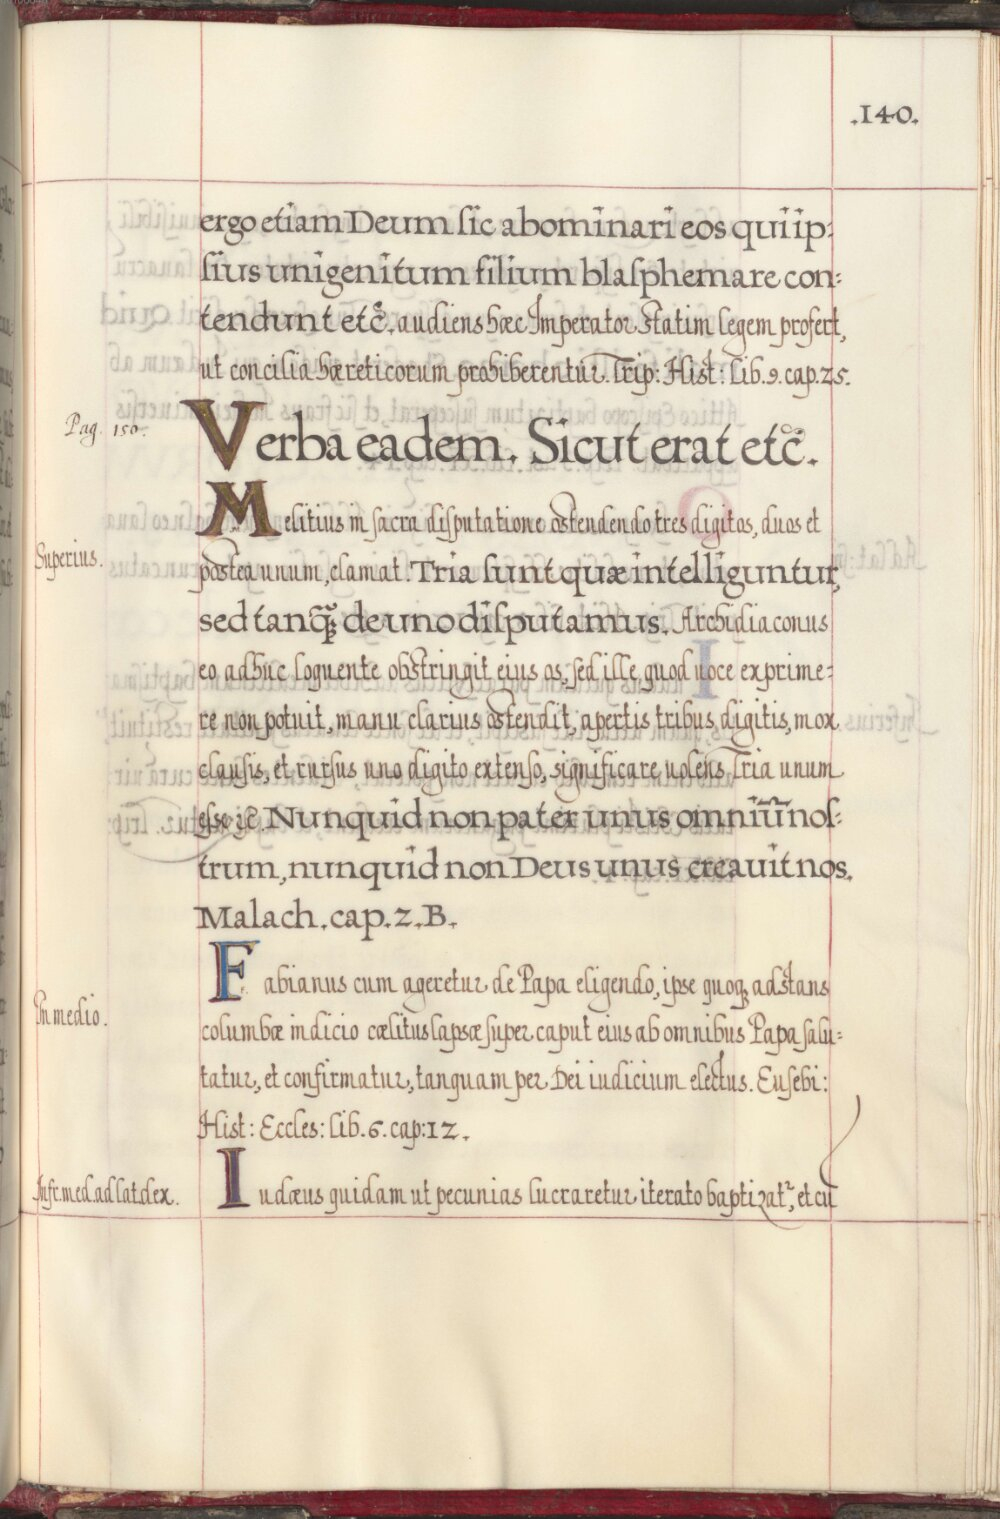 .140.
ergo etiam Deum sic abominari eos qui ip:
sius unigenitum filium blasphemare con:
tendunt etc̃. audiens hæc Imperator statim legem profert,
ut concilia hæreticorum prohiberentur. Trip: Hist: Lib. 9. cap. 25.
Pag. 150.
Verba eadem. Sicut erat etc̃.
Melitius in sacra disputatione ostendendo tres digitos, duos et
Superius.
postea unum, clamat. Tria sunt quæ intelliguntur,
sed tanq̃ de uno disputamus. Archidiaconus
eo adhuc loquente obstringit eius os, sed ille, quod uoce exprime:
re non potuit, manu clarius ostendit, apertis tribus digitis, mox
clausis, et rursus uno digito extenso, significare uolens Tria unum
esse ic̃. Nunquid non pater unus omniũ nos:
trum, nunquid non Deus unus creauit nos.
Malach. cap. 2. B.
Fabianus cum ageretur de Papa eligendo, ipse quoq; adstans
In medio.
columbæ indicio cælitus lapsæ super caput eius ab omnibus Papa salu:
tatur, et confirmatur, tanquam per Dei iudicium electus. Eusebi:
Hist: Eccles: lib. 6. cap: 12.
Infr. med. ad lat. dex.
Iudæus quidam ut pecunias lucraretur iterato baptizatʳ, et cũ